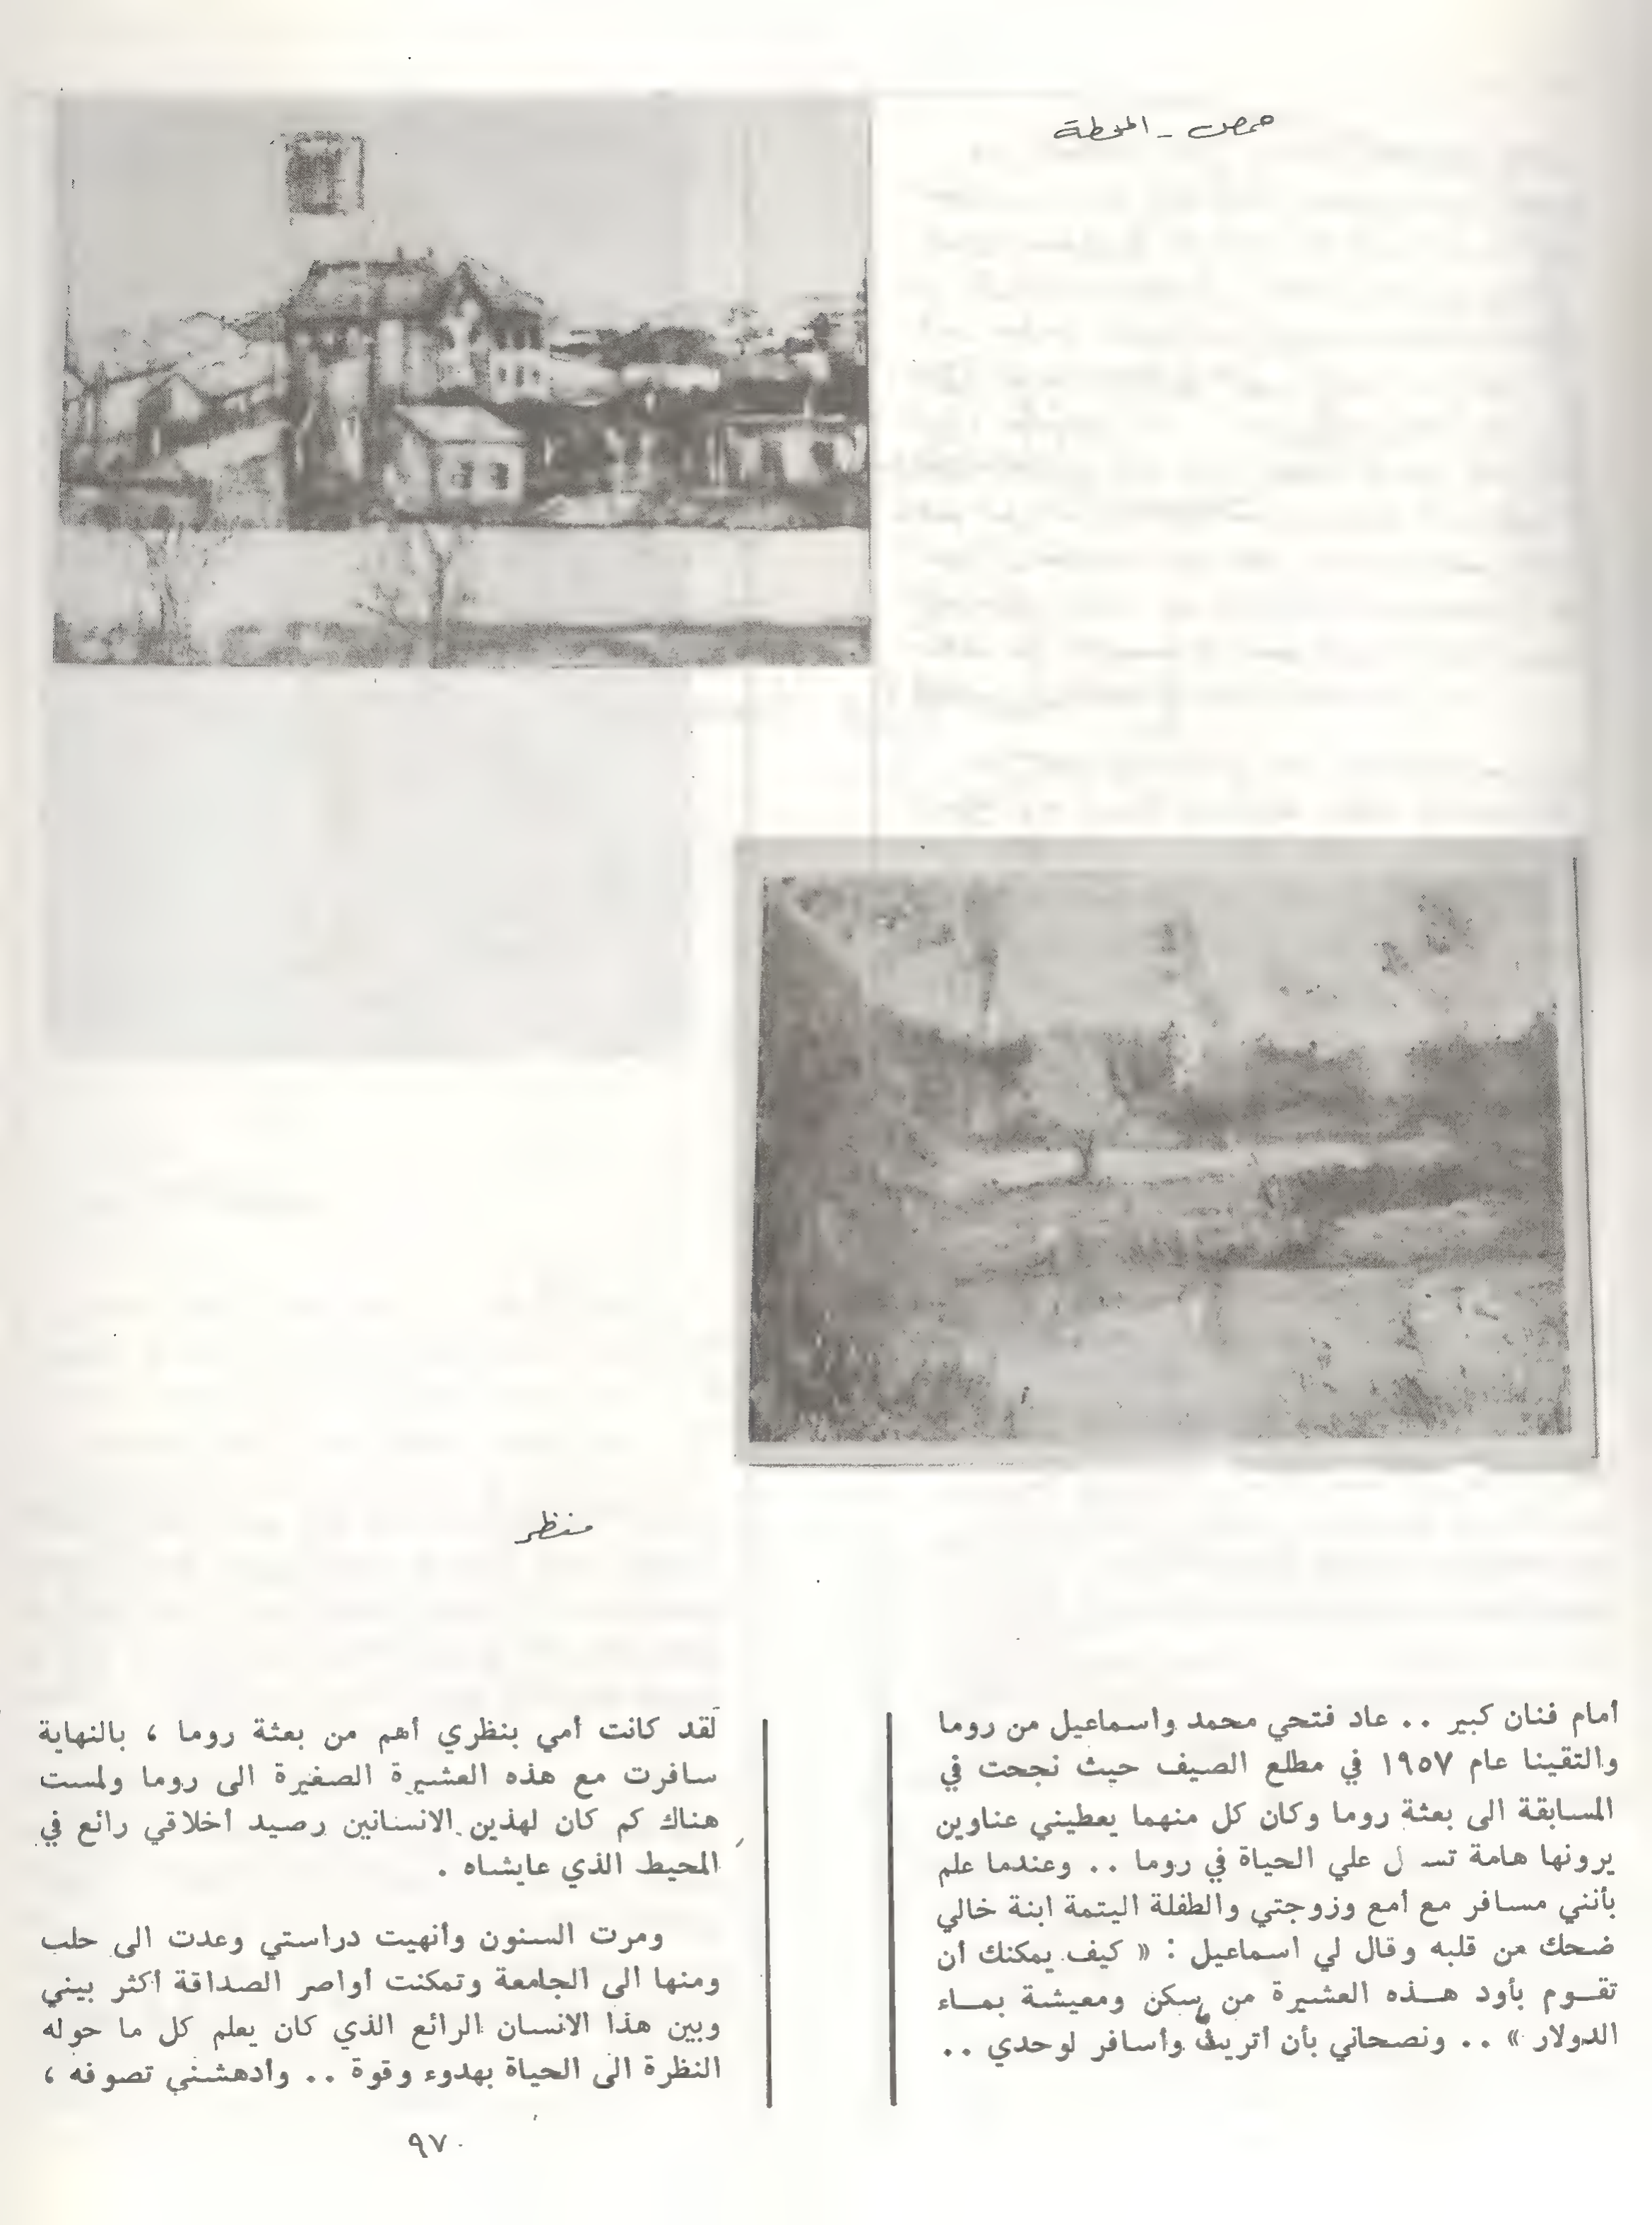 حمص - المحطة
منظر
أمام فنان كبير .. عاد فتحي محمد واسماعيل من روما
والتقينا عام ١٩٥٧ في مطلع الصيف حيث نجحت في
المسابقة الى بعثة روما وكان كل منهما يعطيني عناوين
يرونها هامة تسـ ل علي الحياة في روما .. وعندما علم
بأنني مسافر مع أمع وزوجتي والطفلة اليتمة ابنة خالي
ضحك من قلبه وقال لي اسماعيل : « كيف يمكنك أن
تقــوم بأود هــذه العشيرة من سكن ومعيشة بمــاء
الدولار » .. ونصحاني بأن أتريث وأسافر لوحدي ..
لقد كانت أمي بنظري أهم من بعثة روما ، بالنهاية
سافرت مع هذه العشيرة الصغيرة الى روما ولمست
هناك كم كان لهذين الانسانين رصيد أخلاقي رائع في
المحيط الذي عايشاه .
ومرت السنون وأنهيت دراستي وعدت الى حلب
ومنها الى الجامعة وتمكنت أواصر الصداقة أكثر بيني
وبين هذا الانسان الرائع الذي كان يعلم كل ما حوله
النظرة الى الحياة بهدوء وقوة .. وأدهشني تصوفه ،
٩٧